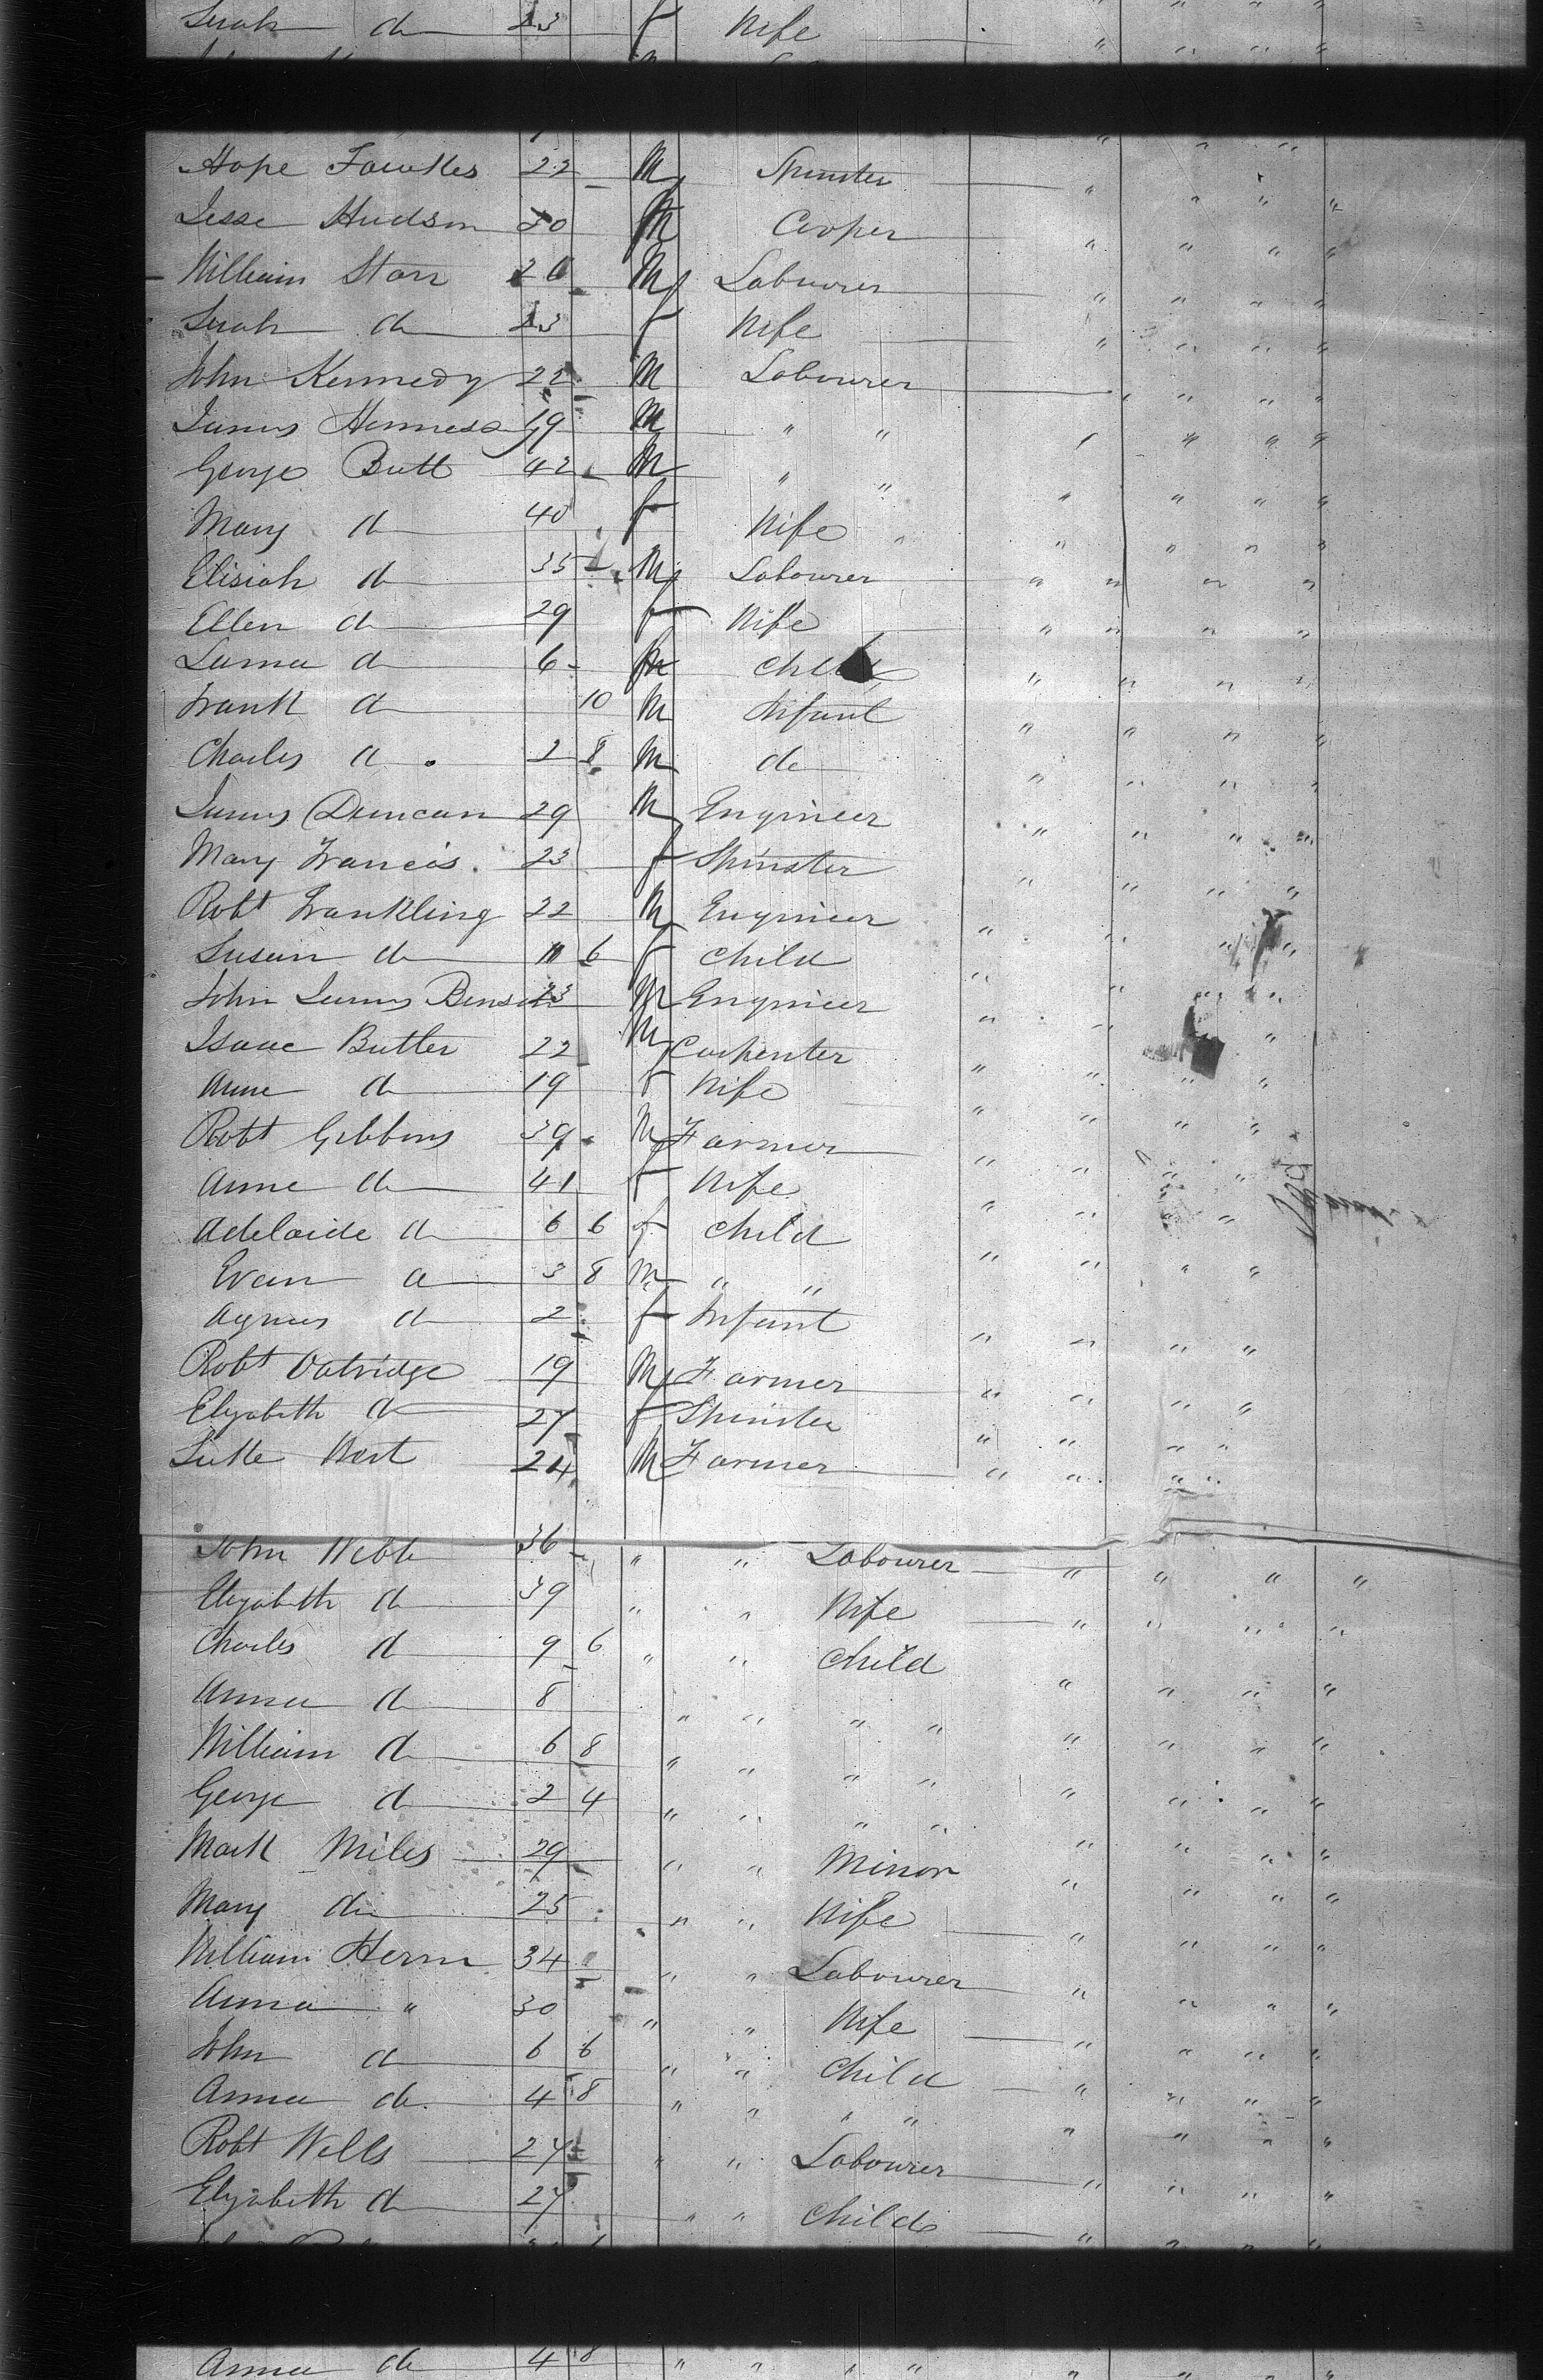 Sarah do 23 f Wife " " " "
Hope Fawkes 22 M Spinster " " " "
Jesse Hudson 30 M Cooper " " " "
William Starr 26 M Labourer " " " "
Sarah do 23 f Wife " " " "
John Kennedy 22 M Labourer " " " "
James Hennessy 19 M " " " " " "
George Butt 42 M " " " " " "
Mary do 40 f Wife " " " "
Elisiah do 35 M Labourer " " " "
Ellen do 29 f Wife " " " "
do 6 Child " " " "
Frank do 10 M Infant " " " "
Charles do 2 8 M do " " " "
James Duncan 29 M Engineer " " " "
Mary Francis 23 f Spinster " " " "
Robt Frankling 22 M Engineer " " " "
Susan do 11 6 f Child " " " "
John James Benson 23 M Engineer " " " "
Isaac Butler 22 M Carpenter " " " "
Anne do 19 f Wife " " " "
Robt Gibbons 39 M Farmer " " " "
Anne do 41 f Wife " " " "
Adelaide do 6 6 f Child " " " "
Evan do 3 8 M " " " " " "
Agnes do 2 f Infant " " " "
Robt Oatridge 19 M Farmer " " " "
Elizabeth do 27 f Spinster " " " "
Luke West 24 M Farmer " " " "
John Webb 36 " " Labourer " " " "
Elizabeth do 39 " " Wife " " " "
Charles do 9 6 " " Child " " " "
Anna do 8 " " " " " " " "
William do 6 8 " " " " " " " "
George do 2 4 " " " " " " " "
Mark Miles 29 " " Minor " " " "
Mary do 25 " " Wife " " " "
William Hern 34 " " Labourer " " " "
Anna " 30 " " Wife " " " "
John do 6 6 " " Child " " " "
Anna do 4 8 " " " " " " " "
Robt Wells 27 " " Labourer " " " "
Elizabeth do 27 " " Child " " " "
Anna do 4 8 " " " " " " " "